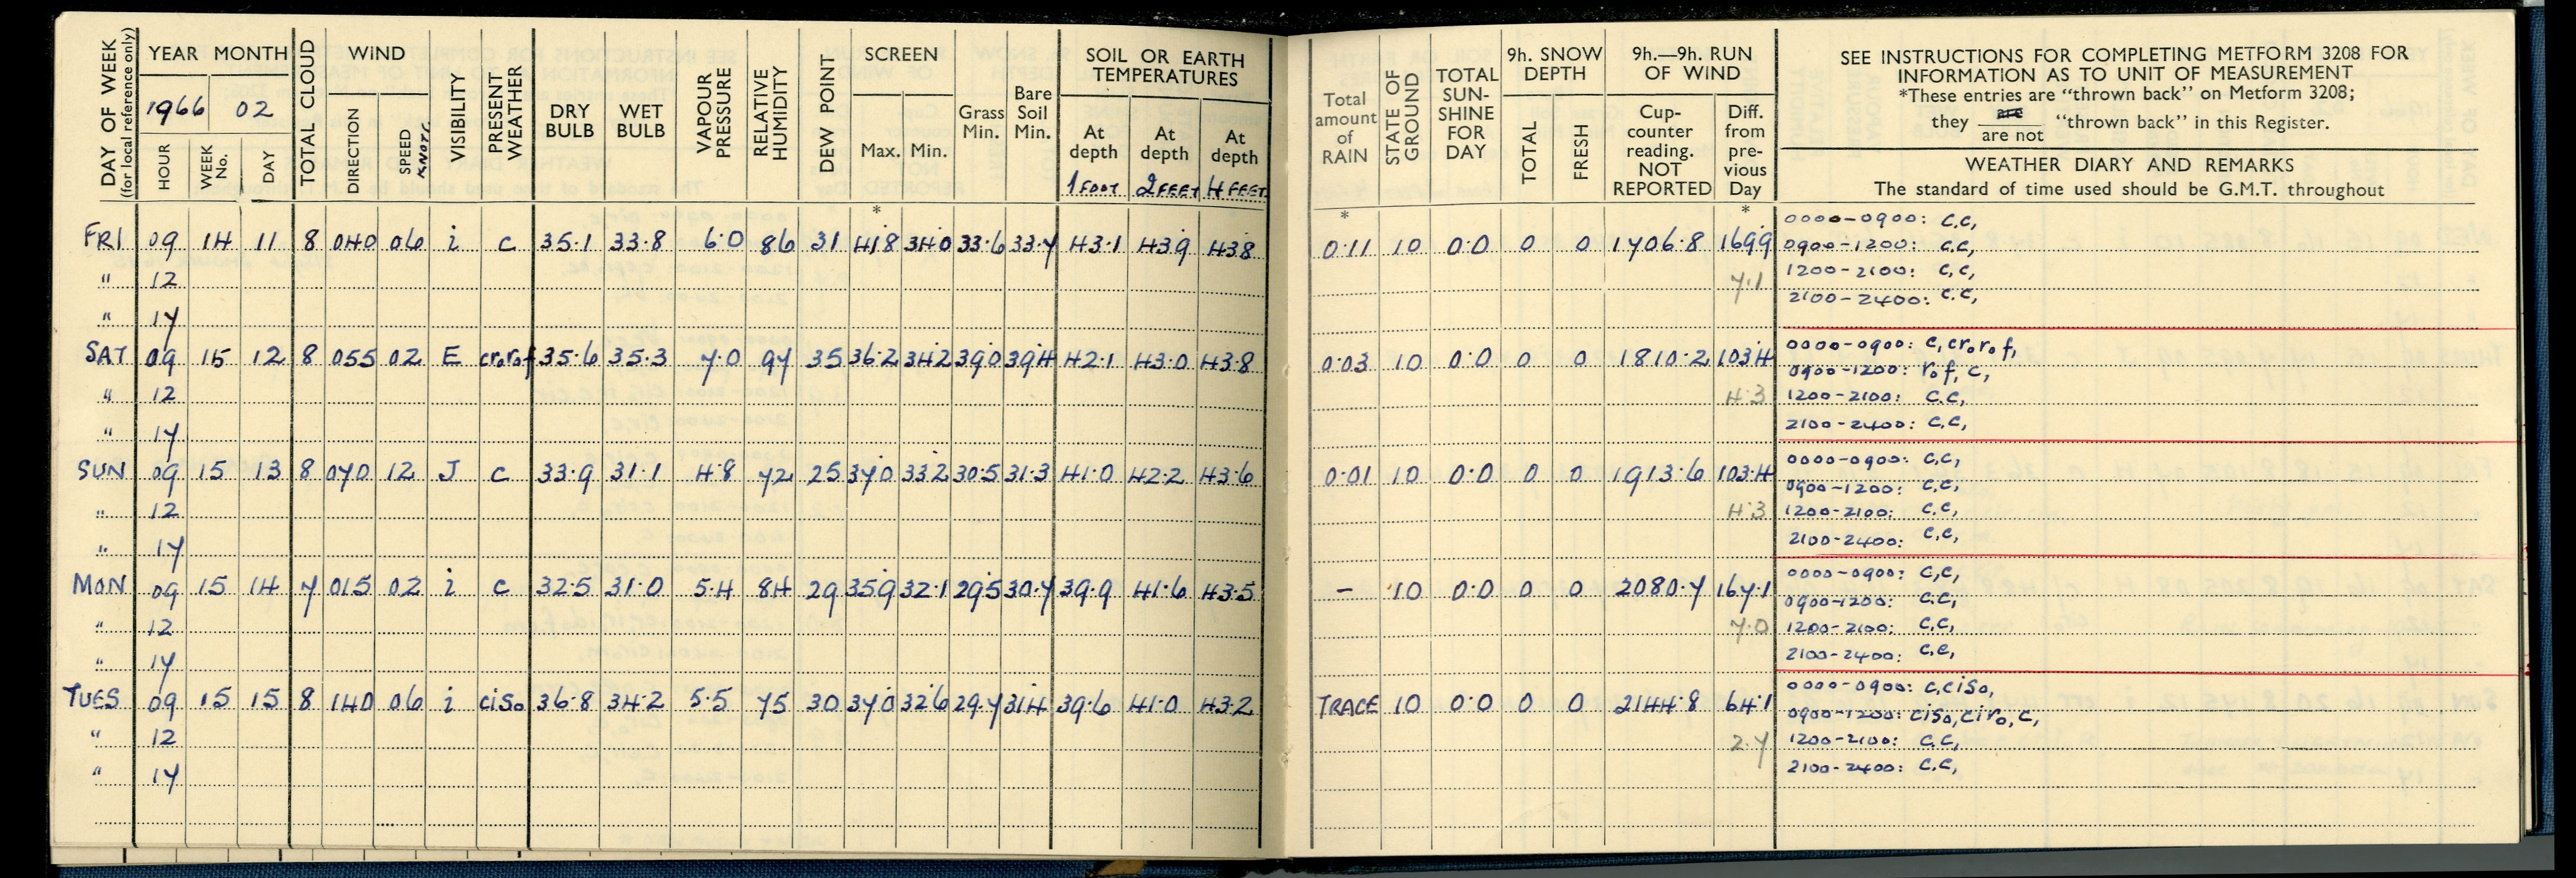 DAY OF WEEK (for local reference only)
YEAR MONTH
1966 02
HOUR WEEK No. DAY
TOTAL CLOUD
WIND
DIRECTION SPEED KNOTS
VISIBILITY
PRESENT WEATHER
DRY BULB
WET BULB
VAPOUR PRESSURE
RELATIVE HUMIDITY
DEW POINT
SCREEN
Max. Min.
Grass Min.
Bare Soil Min.
SOIL OR EARTH TEMPERATURES
At depth 1 FOOT
At depth 2 FEET
At depth 4 FEET
Total amount of RAIN
STATE OF GROUND
TOTAL SUN-SHINE FOR DAY
9h. SNOW DEPTH
TOTAL FRESH
9h.—9h. RUN OF WIND
Cup-counter reading. NOT REPORTED
Diff. from pre-vious Day
SEE INSTRUCTIONS FOR COMPLETING METFORM 3208 FOR
INFORMATION AS TO UNIT OF MEASUREMENT
*These entries are "thrown back" on Metform 3208;
they are / are not "thrown back" in this Register.
WEATHER DIARY AND REMARKS
The standard of time used should be G.M.T. throughout
* * *
FRI 09 14 11 8 040 06 i c 35.1 33.8 6.0 86 31 41.8 34.0 33.6 33.7 43.1 43.9 43.8 0.11 10 0.0 0 0 1706.8 169.9
0000-0900: c,c,
0900-1200: c,c,
" 12 7.1
1200-2100: c,c,
2100-2400: c,c,
" 17
SAT 09 15 12 8 055 02 E crorof 35.6 35.3 7.0 97 35 36.2 34.2 39.0 39.4 42.1 43.0 43.8 0.03 10 0.0 0 0 1810.2 103.4
0000-0900: c, cror₀f,
0900-1200: r₀f, c,
" 12 4.3
1200-2100: c,c,
2100-2400: c,c,
" 17
SUN 09 15 13 8 070 12 J c 33.9 31.1 4.8 72 25 37.0 33.2 30.5 31.3 41.0 42.2 43.6 0.01 10 0.0 0 0 1913.6 103.4
0000-0900: c,c,
0900-1200: c,c,
" 12 4.3
1200-2100: c,c,
2100-2400: c,c,
" 17
MON 09 15 14 7 015 02 i c 32.5 31.0 5.4 84 29 35.9 32.1 29.5 30.7 39.9 41.6 43.5 — 10 0.0 0 0 2080.7 167.1
0000-0900: c,c,
0900-1200: c,c,
" 12 7.0
1200-2100: c,c,
2100-2400: c,c,
" 17
TUES 09 15 15 8 140 06 i ciso 36.8 34.2 5.5 75 30 37.0 32.6 29.7 31.4 39.6 41.0 43.2 TRACE 10 0.0 0 0 2144.8 64.1
0000-0900: c,ciso,
0900-1200: ciso,ciro,c,
" 12 2.7
1200-2100: c,c,
2100-2400: c,c,
" 17